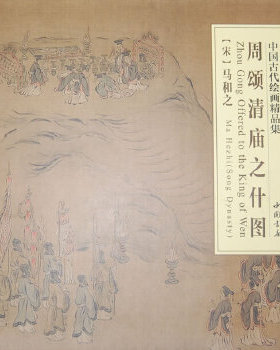 中国古代绘画精品集
周颂清庙之什图
Zhou Gong Offered to the King of Wen
【宋】马和之
Ma Hezhi(Song Dynasty)
中国书店